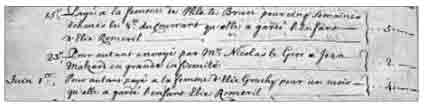 15e. Payé à la femme de Phle. le Brun pour cinq semaines
échues le 8e. du courant qu'elle a gardé l'enfant
d'Elie Romeril 5
23e. Pour autant envoyé par Mr. Nicolas le Geyt à Jean
Mahzard en grande infirmité 2
Juin 1er. Pour autant payé à la femme d'Elie Gruchy pour un mois
qu'elle a gardé l'enfant Elie Romeril 4